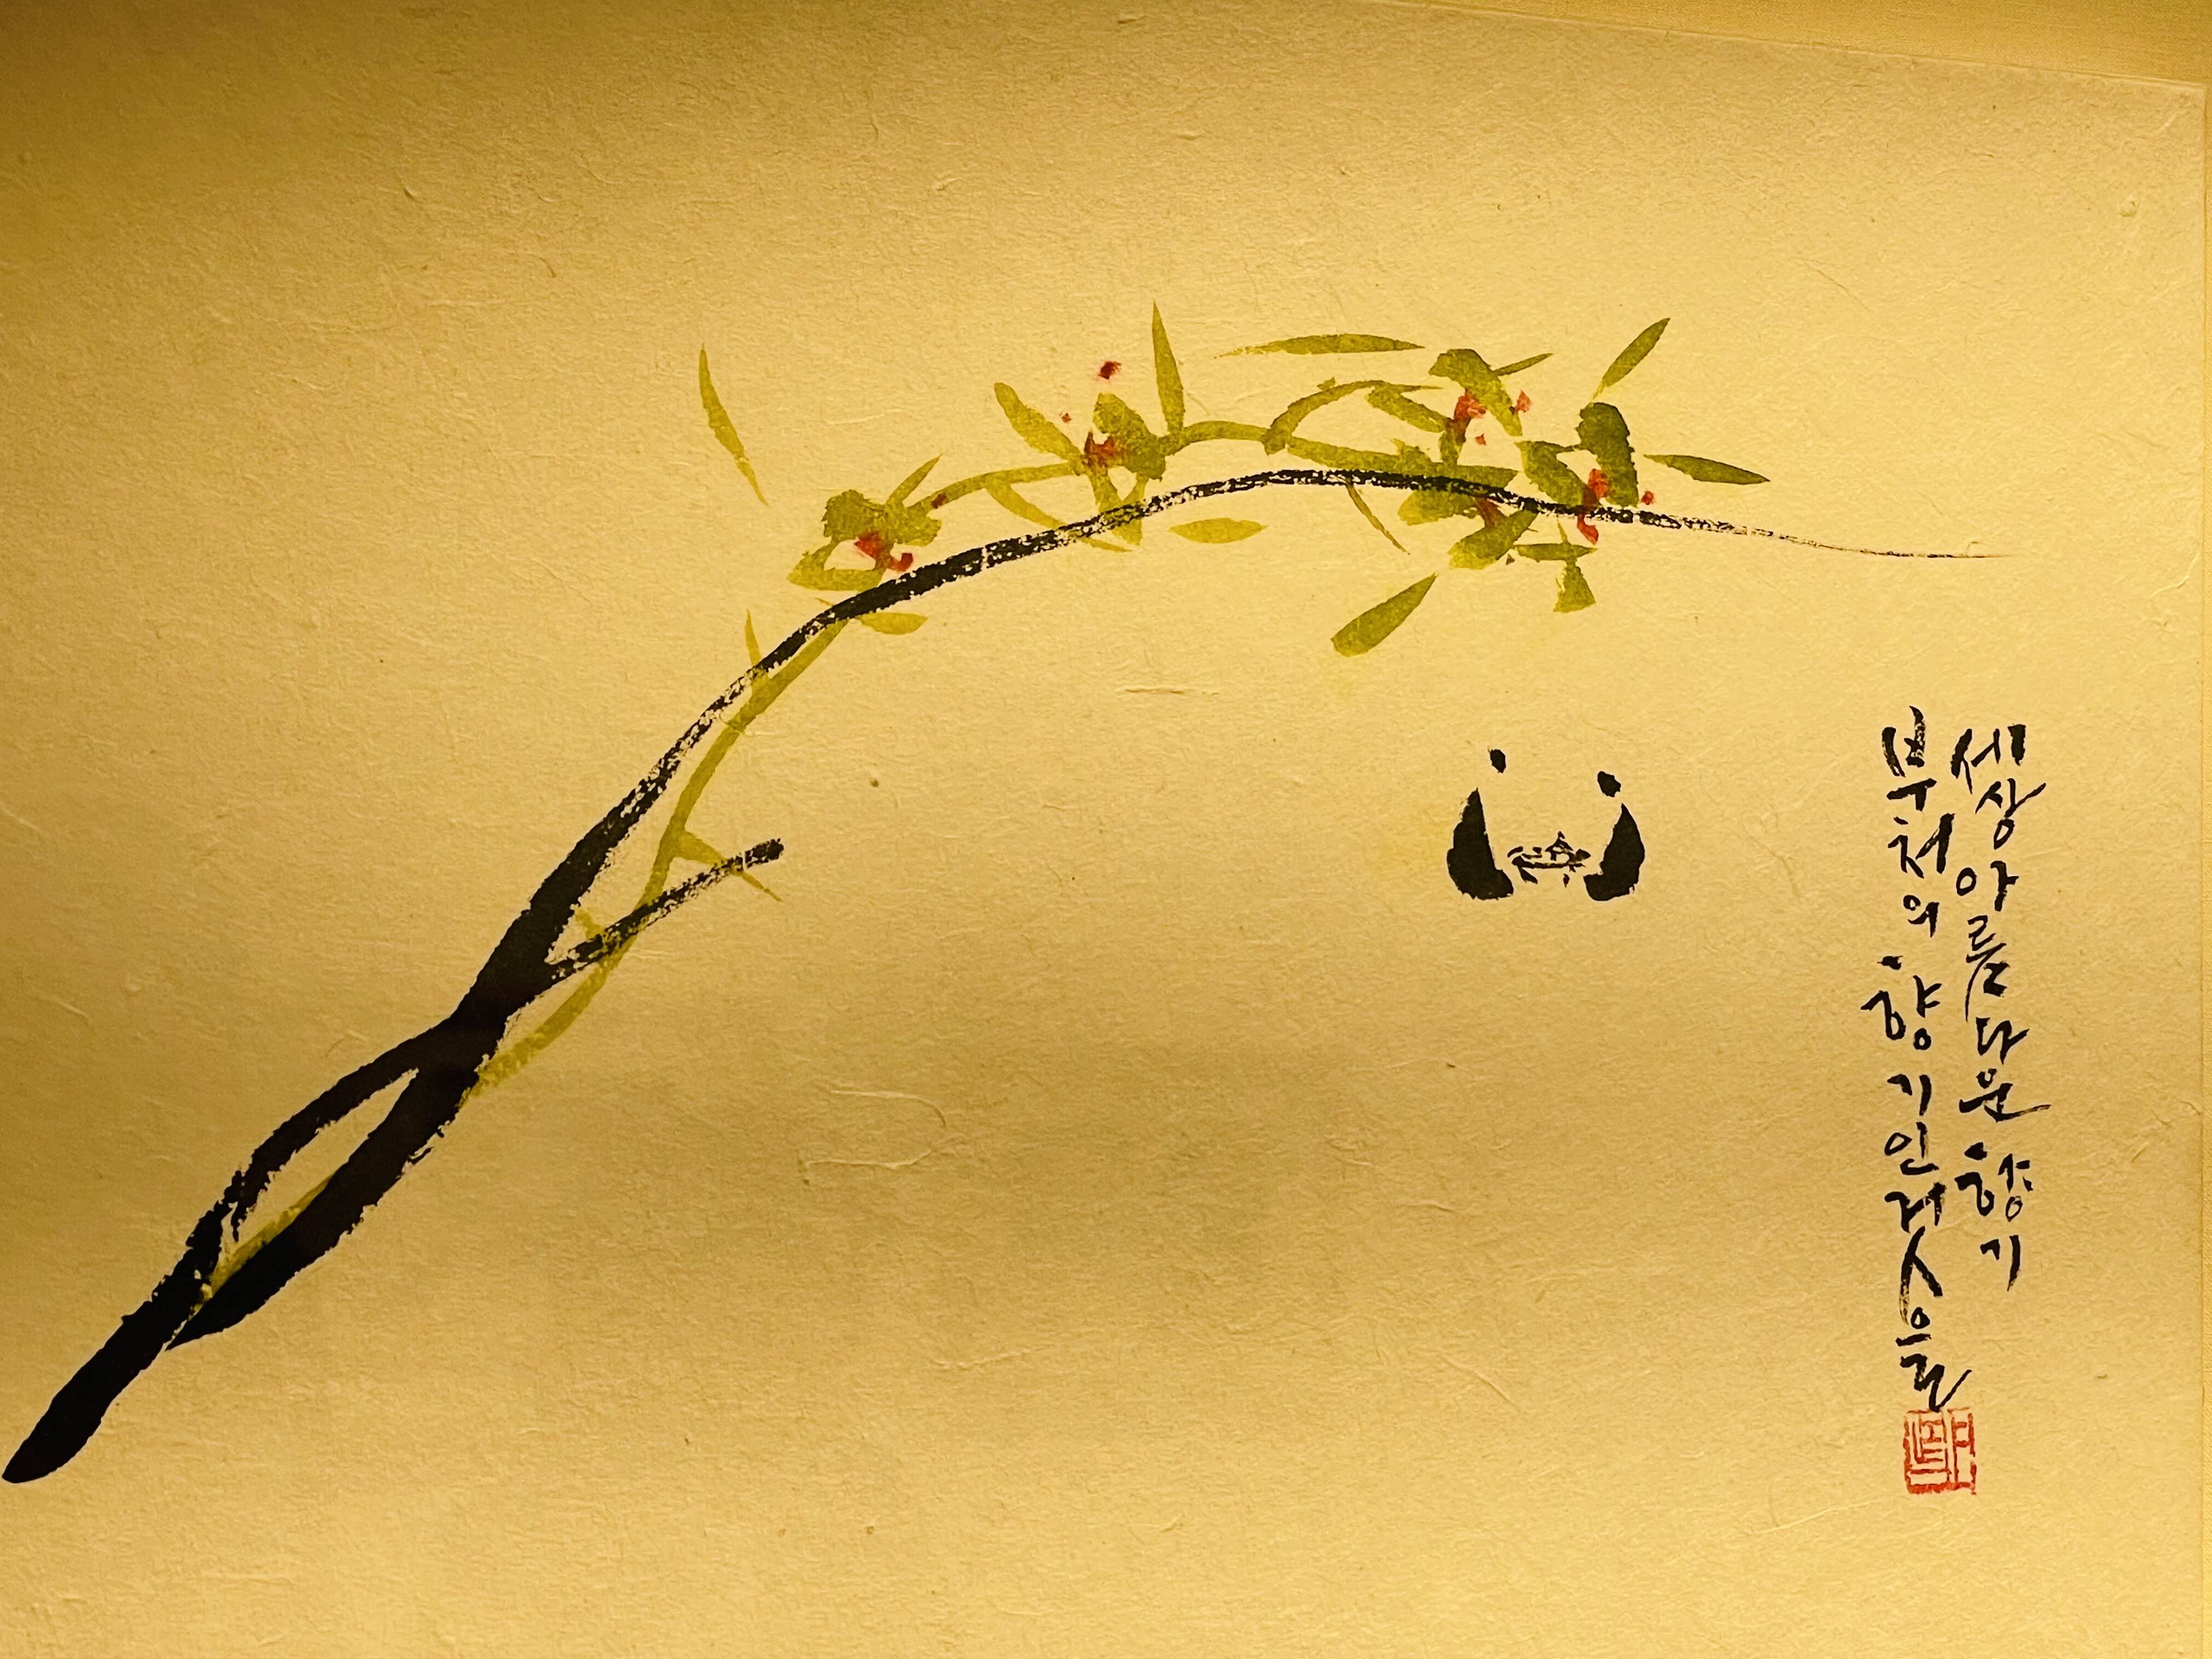 세상 아름다운 향기
부처의 향기인 것을